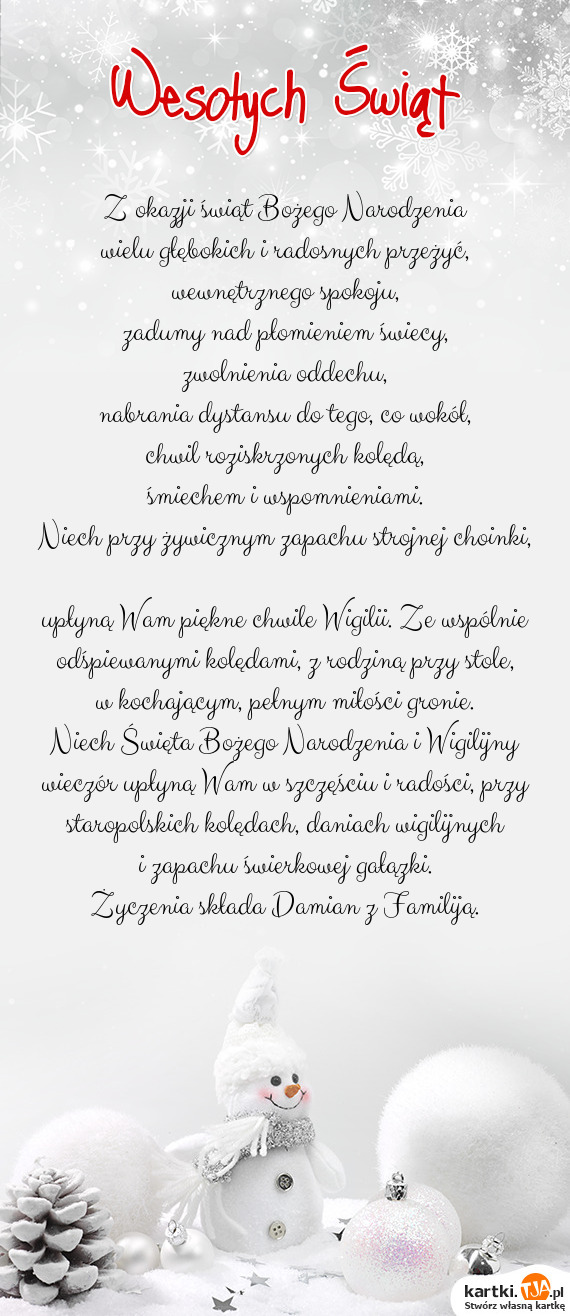 Wesołych Świąt
Z okazji świąt Bożego Narodzenia
wielu głębokich i radosnych przeżyć,
wewnętrznego spokoju,
zadumy nad płomieniem świecy,
zwolnienia oddechu,
nabrania dystansu do tego, co wokół,
chwil roziskrzonych kolędą,
śmiechem i wspomnieniami.
Niech przy żywicznym zapachu strojnej choinki,
upłyną Wam piękne chwile Wigilii. Ze wspólnie
odśpiewanymi kolędami, z rodziną przy stole,
w kochającym, pełnym miłości gronie.
Niech Święta Bożego Narodzenia i Wigilijny
wieczór upłyną Wam w szczęściu i radości, przy
staropolskich kolędach, daniach wigilijnych
i zapachu świerkowej gałązki.
Życzenia składa Damian z Familiją.
kartki.TJA.pl
Stwórz własną kartkę